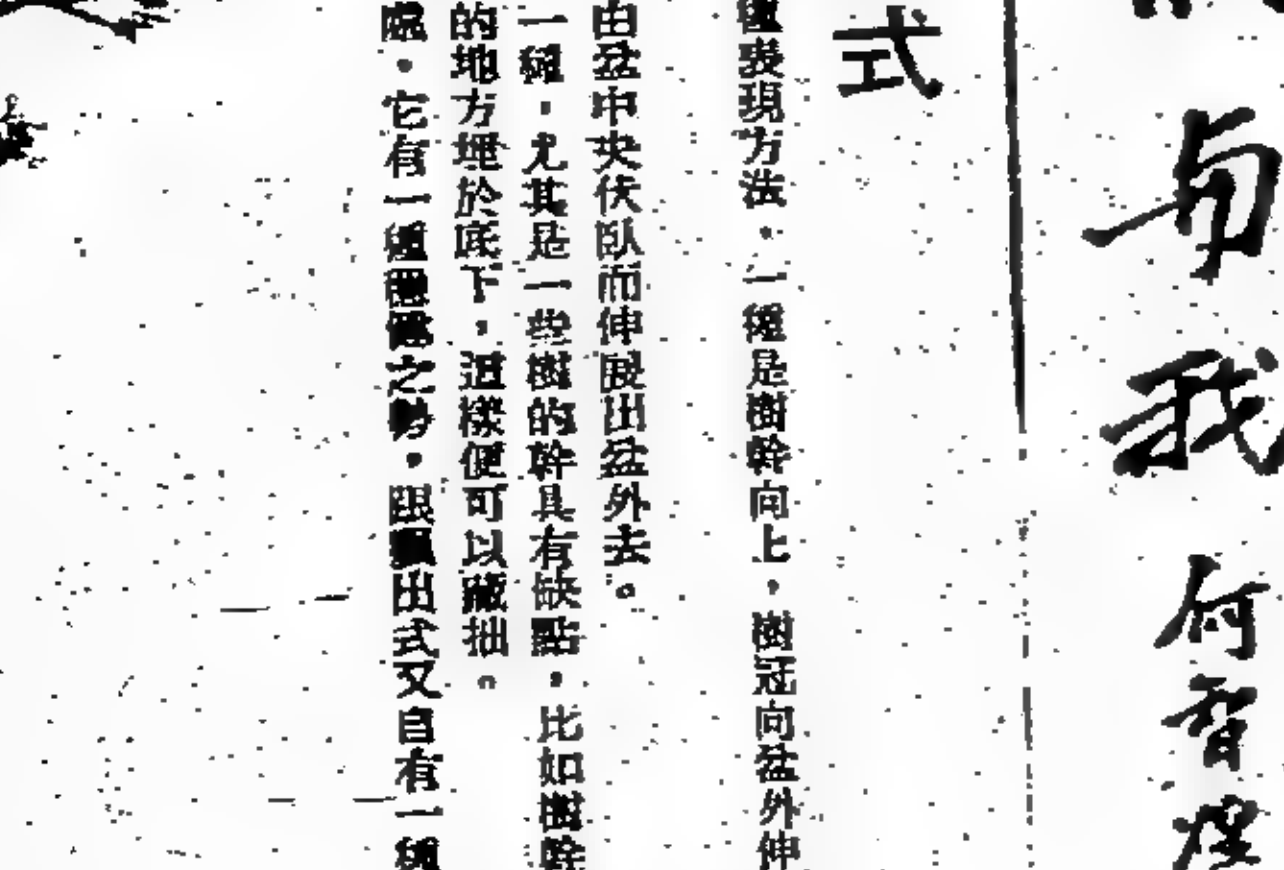 与我 何智
式
表現方法。一種是樹幹向上，樹冠向盆外伸
由盆中央伏臥而伸展出盆外去。
一種，尤其是一些樹的幹具有缺點，比如樹幹
的地方埋於底下，這樣便可以藏拙。
處。它有一種之勢，跟飄出式又自有一種